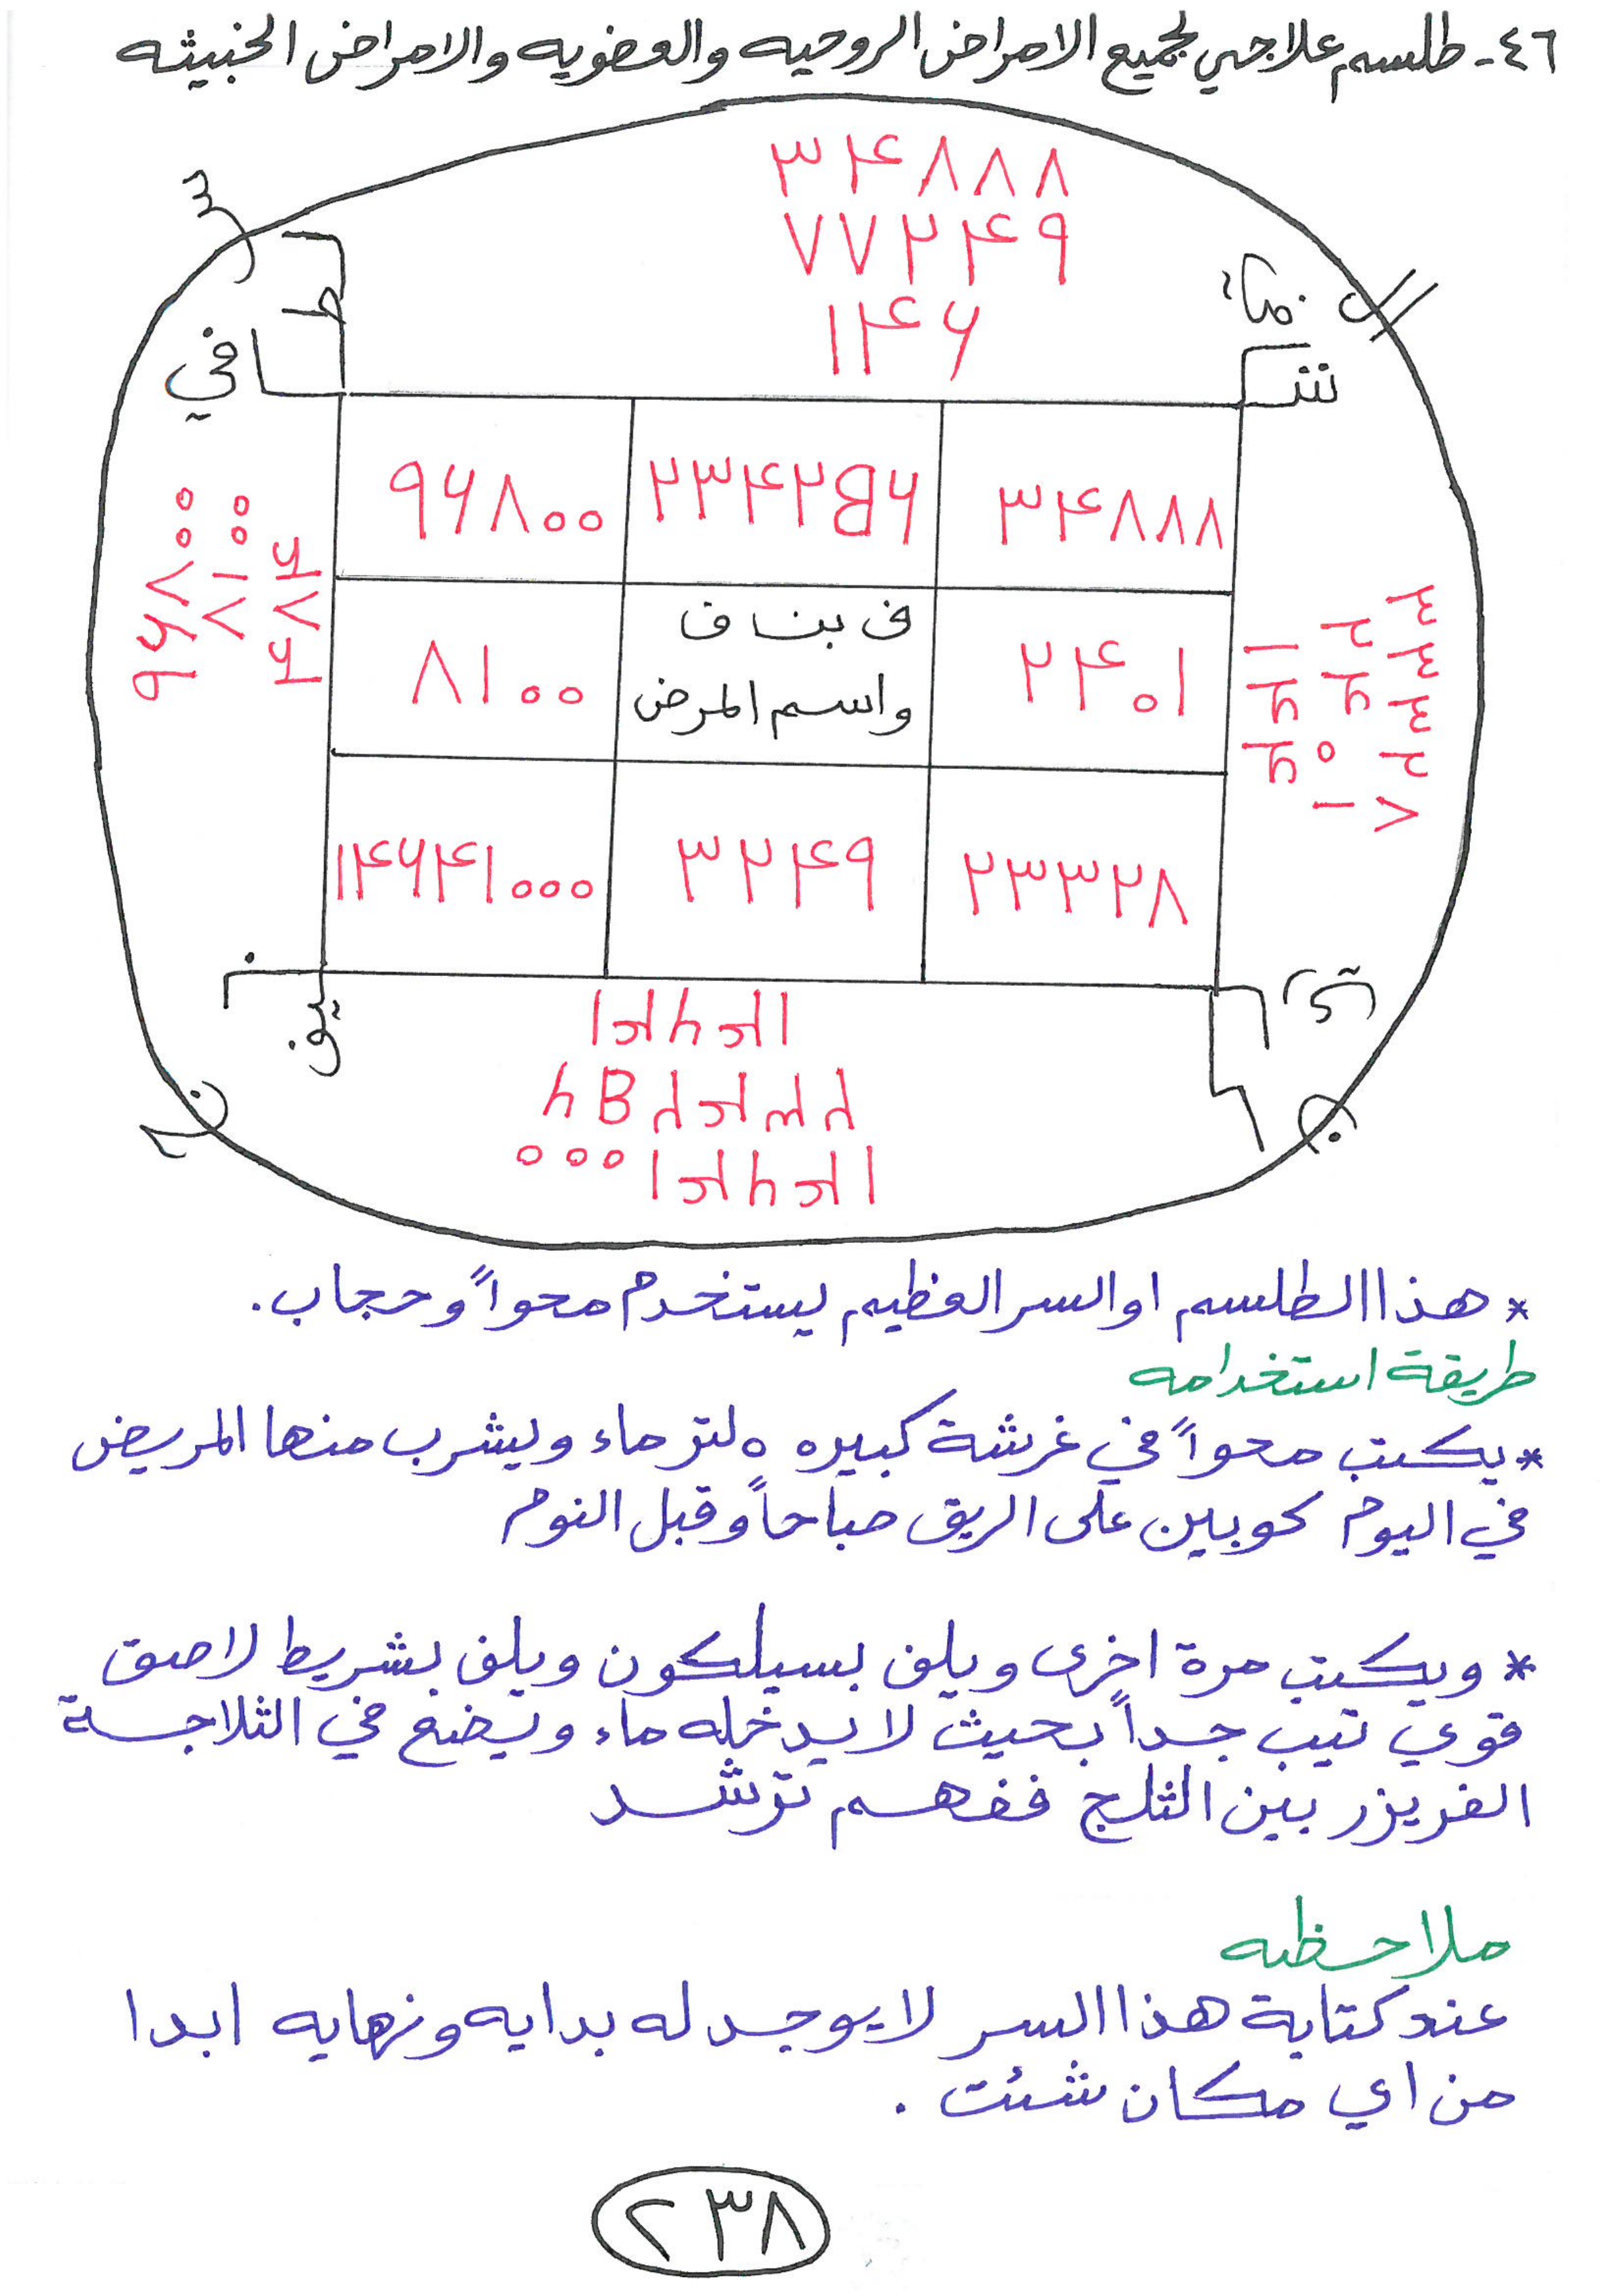 ٤٦- طلسم علاجي لجميع الامراض الروحيه والعضويه والامراض الخبيثه
٣٤٨٨٨
٧٧٢٤٩
١٤٦
شافي
٣٤٨٨٨ ٢٣٤٢B٦ ٩٦٨٠٠
٢٤٠١ ف بن ف ٨١٠٠
واسم المرض
٢٣٣٢٨ ٣٢٤٩ ١٤٦٤١٠٠٠
٣٣٣٢٨
٢٤٠١
١٤٤
٩٦٨٠٠
٨١٠٠
١٤٦٤١
٢٣٤٢B٦
١٤٦٤١٠٠٠
* هذا الطلسم او السر العظيم يستخدم محواً وحجاب.
طريقة استخدامه
* يكتب محواً في غرشة كبيره ٥ لتر ماء ويشرب منها المريض
في اليوم كوبين على الريق صباحاً وقبل النوم
* ويكتب مرة اخرى ويلف بسيلكون ويلف بشريط لاصق
قوي تيب جداً بحيث لا يدخله ماء ويضع في الثلاجة
الفريزر بين الثلج ففهم ترشد
ملاحظه
عند كتابة هذا السر لا يوجد له بدايه ونهايه ابدا
من اي مكان شئت .
٢٣٨